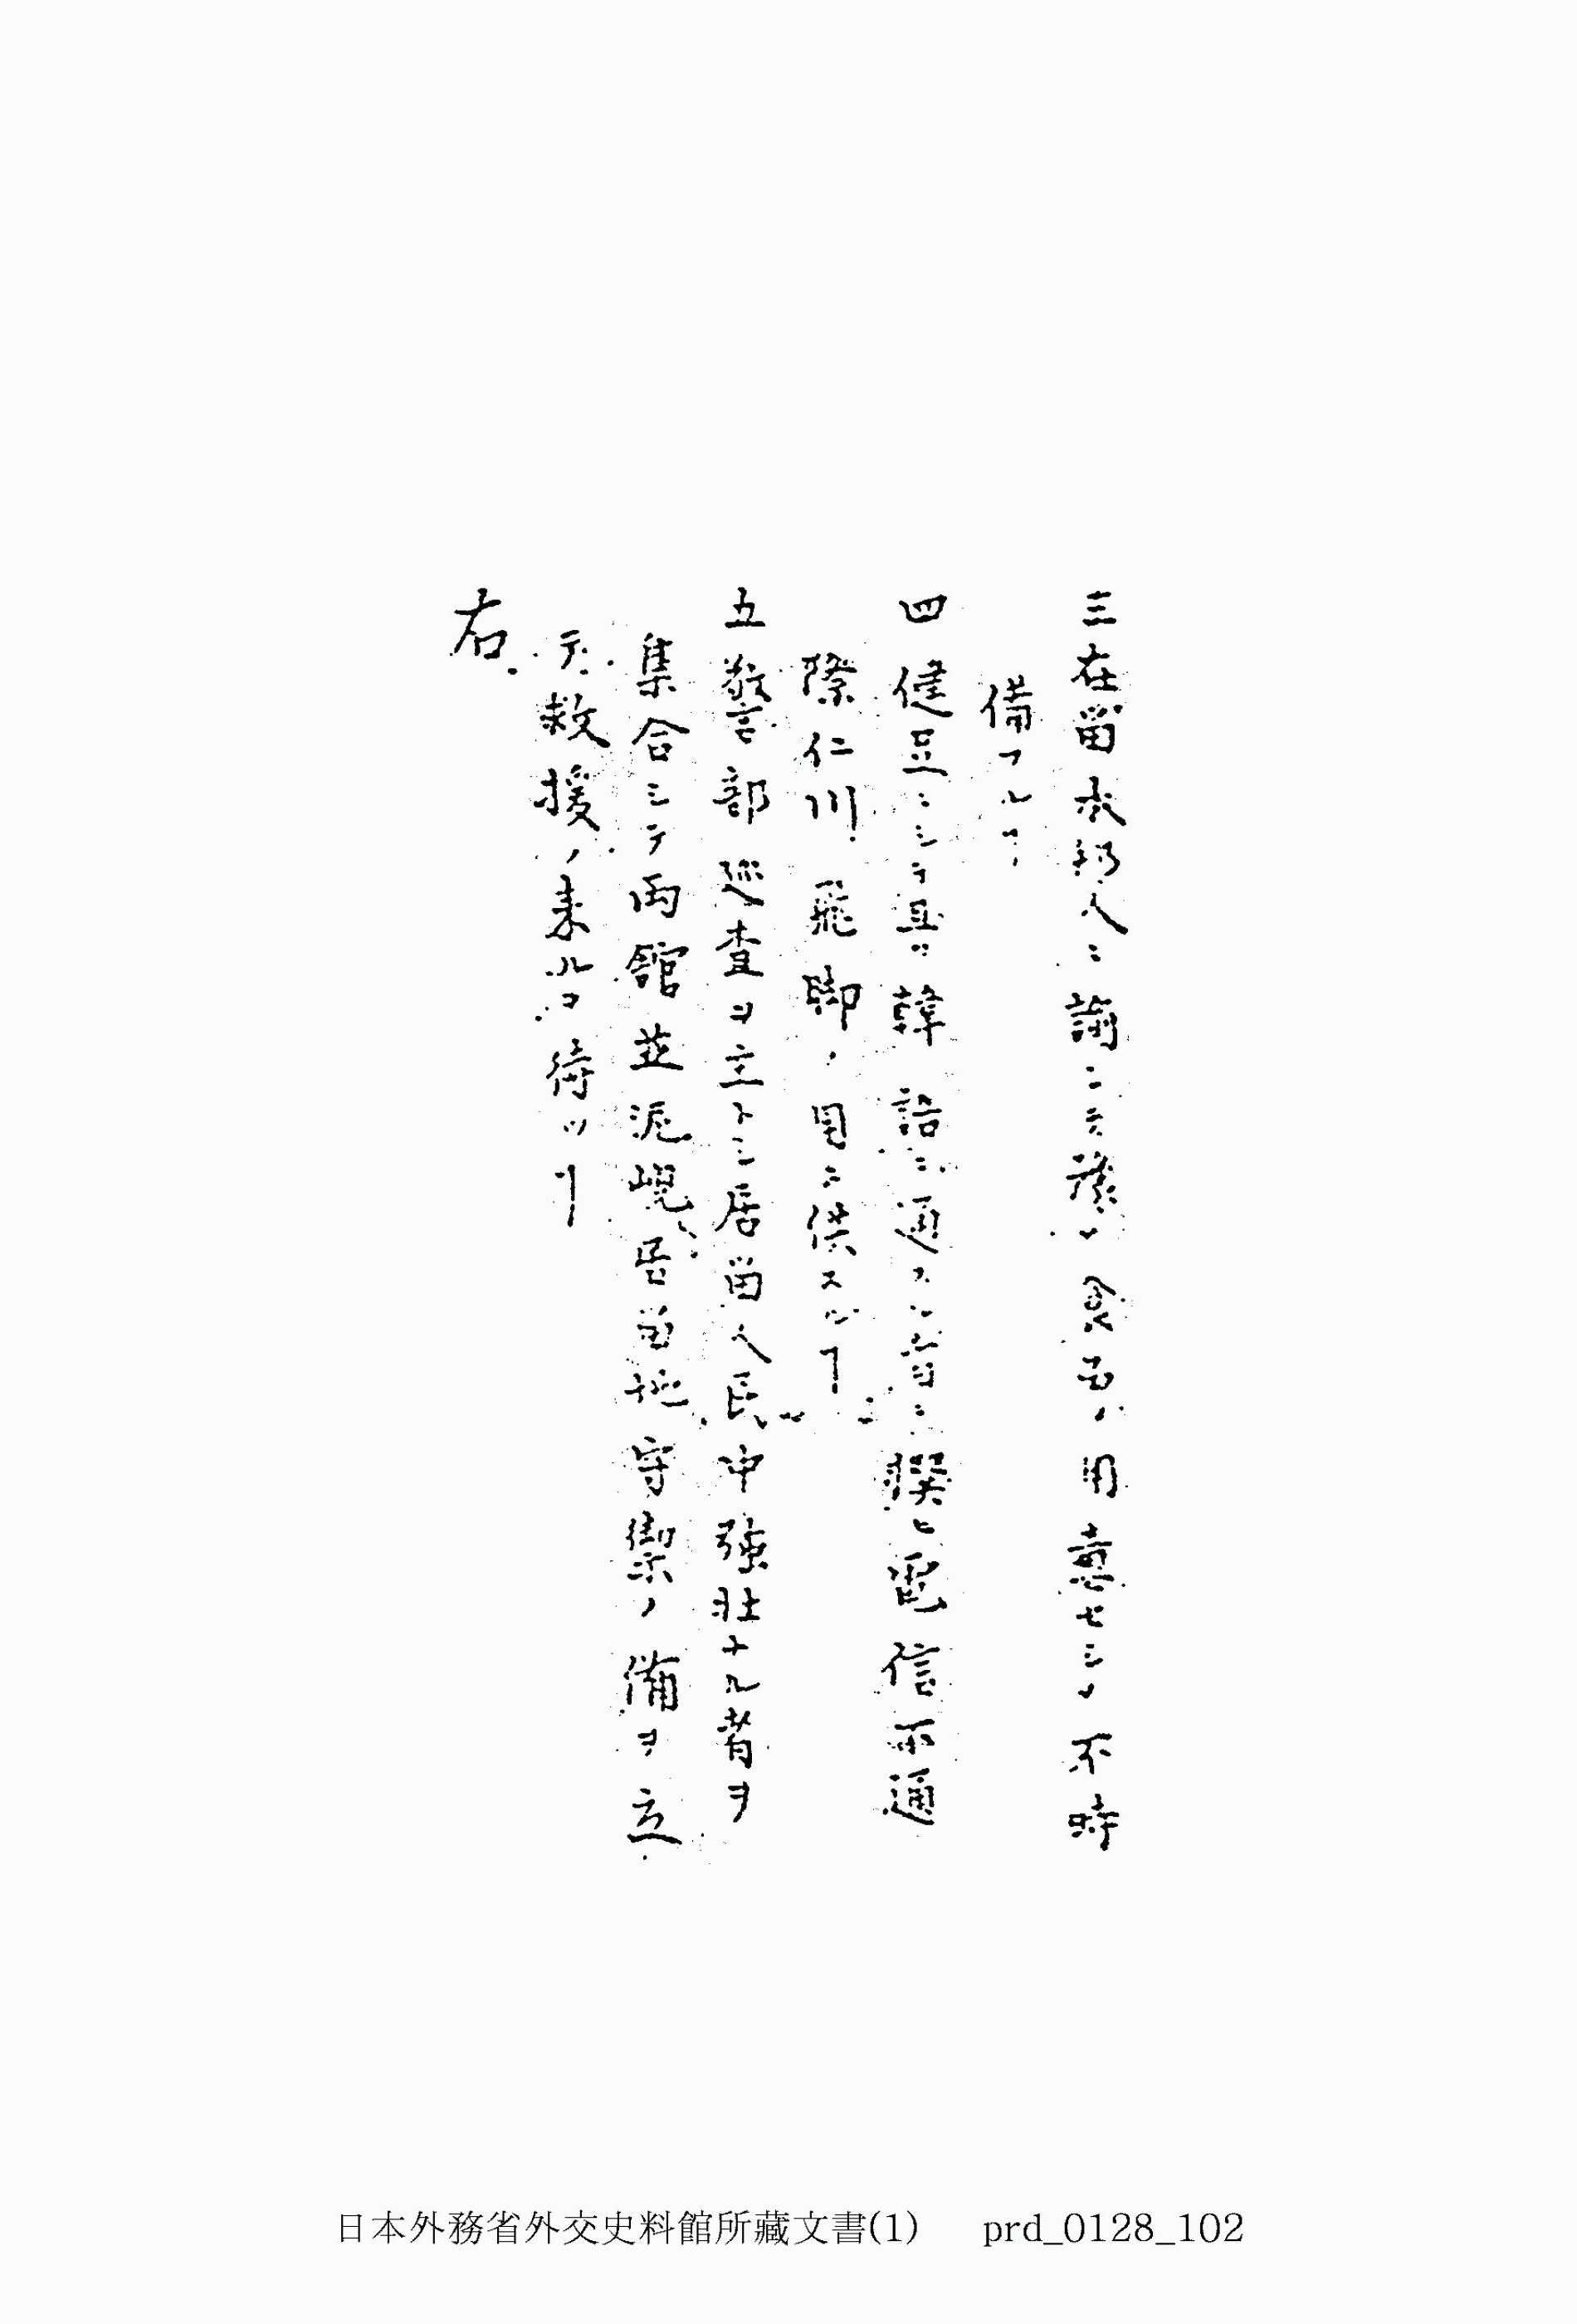 三在留本邦人ニ諭シテ豫メ食品ノ用意セシメ不時
備フルヿ
四健足ニシテ且ツ韓語ニ通スル者ニ撰ヒ電信不通
際仁川飛脚ノ用ニ供スルヿ
五警部巡査ヲ主トシ居留人民中強壮ナル者ヲ
集合シテ両館並泥峴居留地守禦ノ備ヲ立
テ救援ノ来ルヲ待ツヿ
右
日本外務省外交史料館所藏文書(1) prd_0128_102